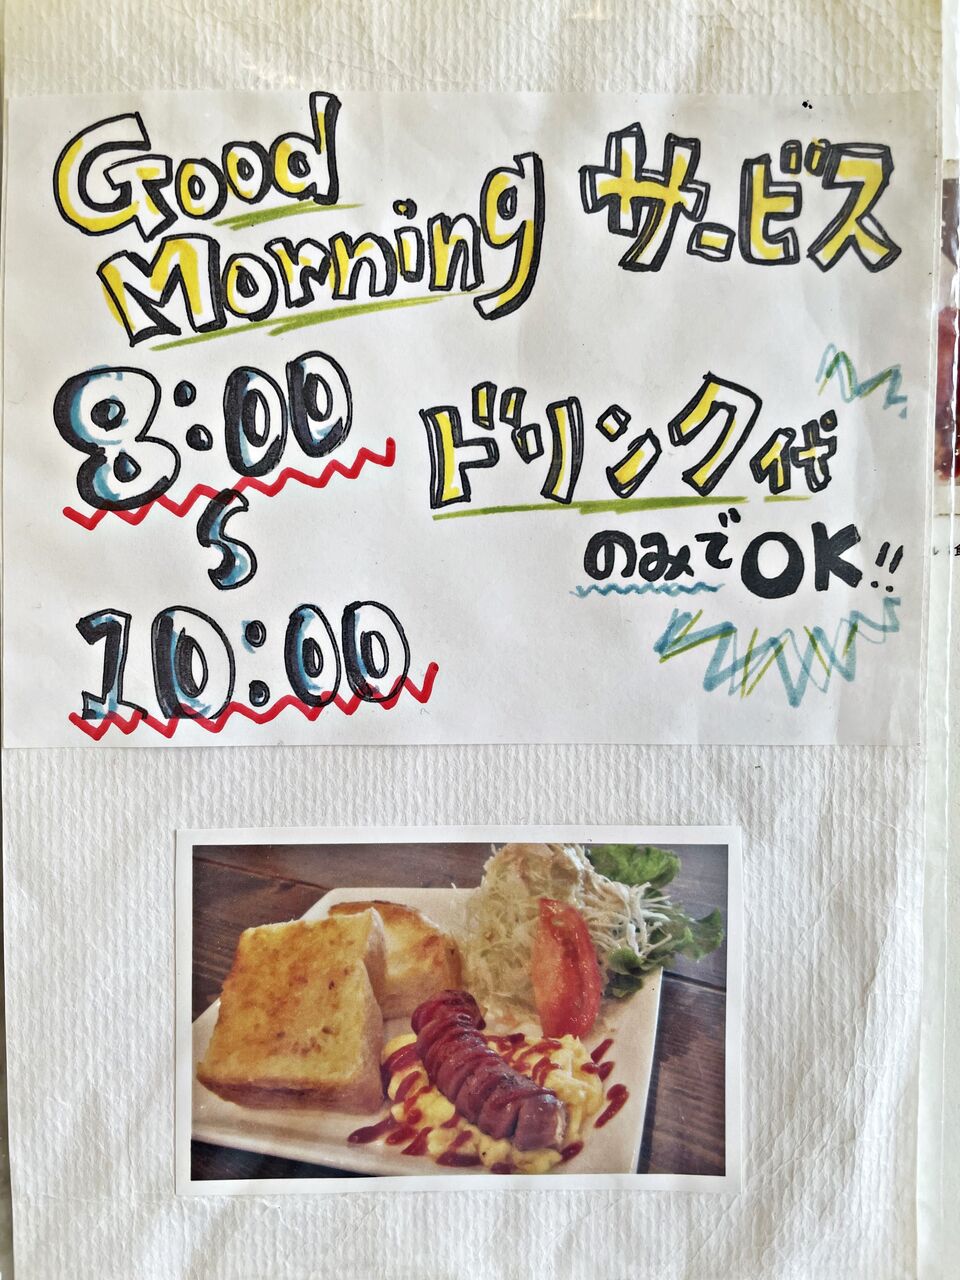 Good
Morning サービス
8:00
〜
10:00
ドリンク代
のみでOK!!